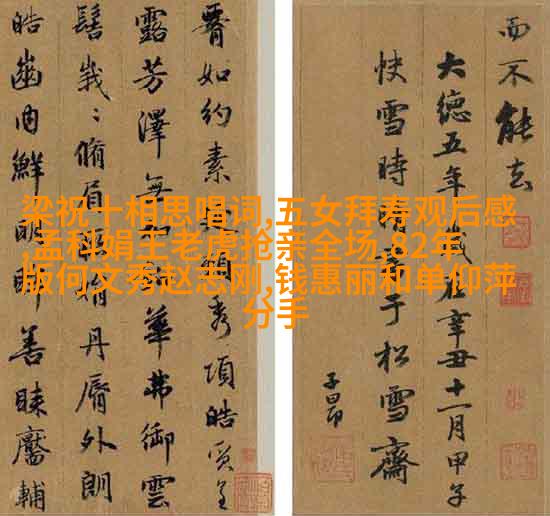 梁祝十相思唱词,五女拜寿观后感
,孟科娟王老虎抢亲全场,82年
版何文秀赵志刚,钱惠丽和单仰萍
分手
而不能去
大德五年歲在辛丑十一月甲子
快雪時晴于松雪齋
子昂
如約素頸秀項皓質呈
露芳澤無華弗御雲
髻峩峩脩眉娟丹脣外朗
皓齒內鮮明眸善睞靨輔